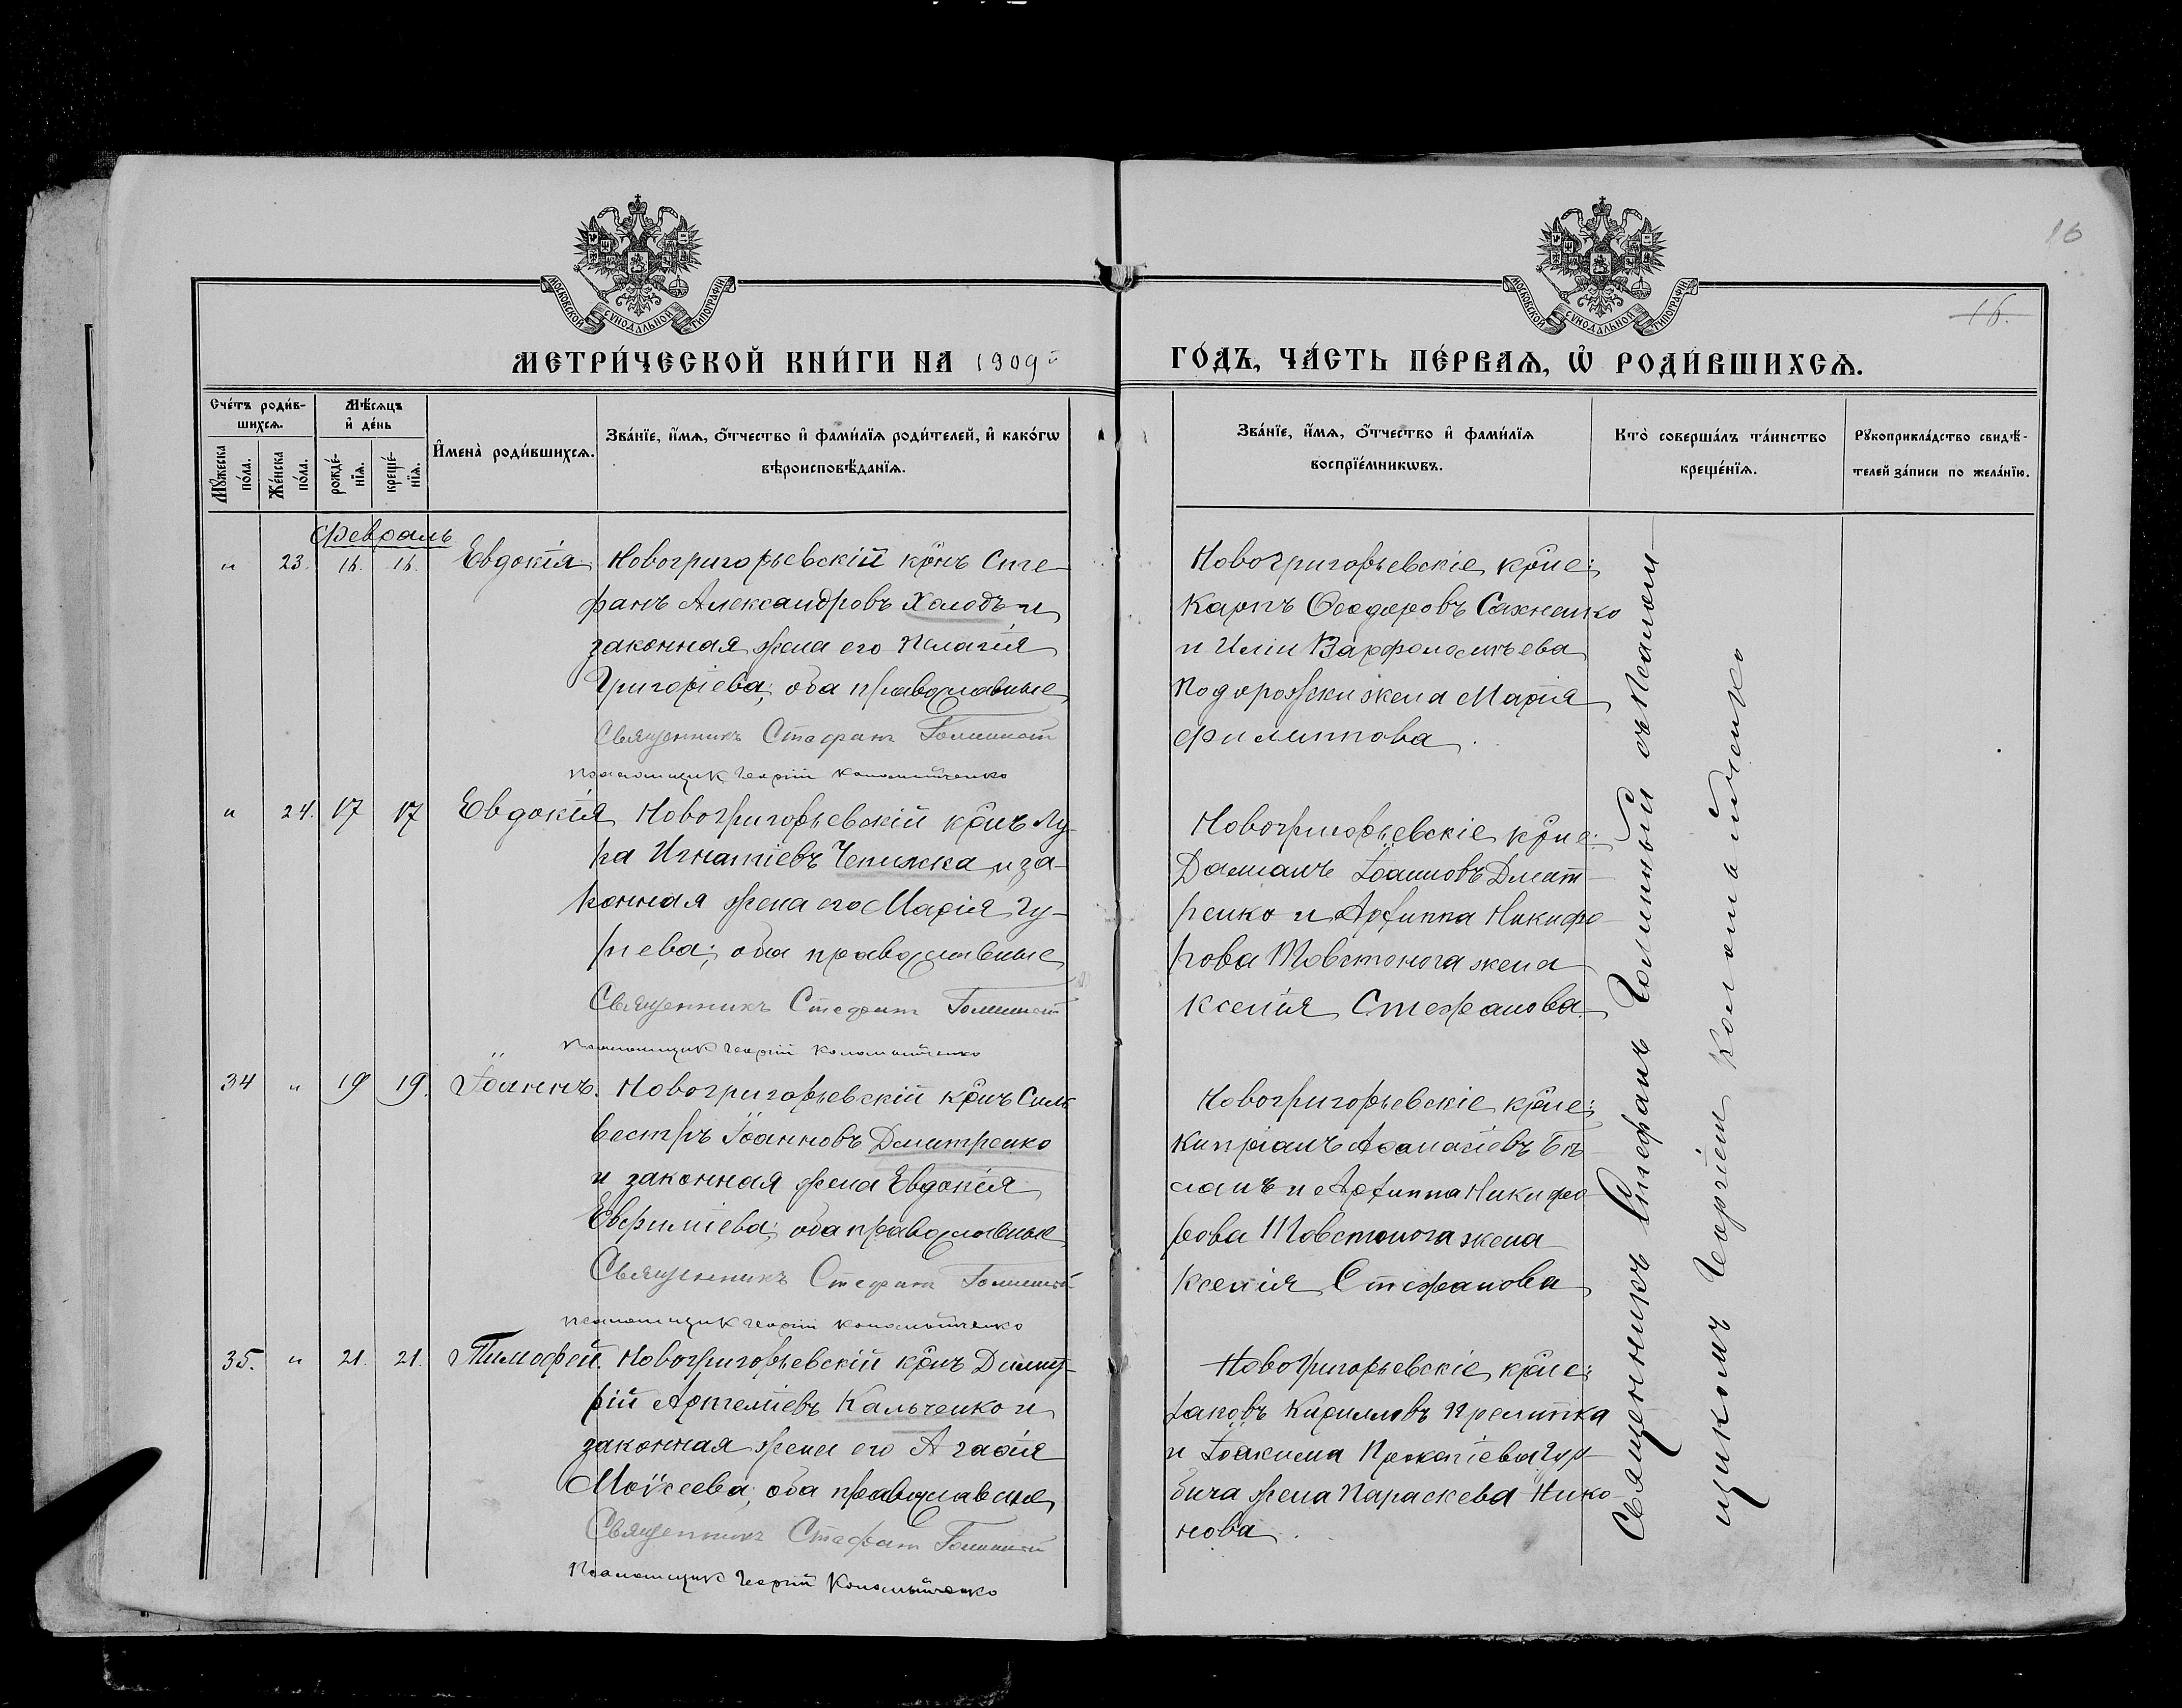 16
МОСКОВСКОЙ СУНОДАЛЬНОЙ ТИПОГРАФІИ
МОСКОВСКОЙ СУНОДАЛЬНОЙ ТИПОГРАФІИ
16.
МЕТРИ́ЧЕСКОЙ КНИ́ГИ НА 1909й
ГО́ДЪ, ЧА́СТЬ ПЕ́РВАѦ, Ѡ҆ РОДИ́ВШИХСѦ.
Сче́тъ роди́в-
шихсѧ.
Мꙋ́жеска по́ла.
Же́нска по́ла.
Мѣ́сѧцъ
и҆ де́нь
рожде́-
нїѧ.
креще́-
нїѧ.
И҆мена̀ роди́вшихсѧ.
Зва́нїе, и҆́мѧ, ѻ҆́тчество и҆ фами́лїѧ роди́телей, и҆ како́гѡ
вѣроисповѣ́данїѧ.
Зва́нїе, и҆́мѧ, ѻ҆́тчество и҆ фами́лїѧ
воспрїе́мникѡвъ.
Кто̀ соверша́лъ та́инство
креще́нїѧ.
Рꙋкоприкла́дство свидѣ́-
телей за́писи по жела́нїю.
Февраль
" 23. 16. 16. Евдокія Новогригорьевскій крнъ Сте-
фанъ Александровъ Холодъ и
законная жена его Пелагія
Григоріева; оба православные
Священникъ Стефан Голинный
Псаломщик Георгій Коломыйченко
Новогригорьевскіе крне:
Карпъ Ѳеодоровъ Сахненко
и Иліи Варфоломѣева
Подорожки жена Марія
Филиппова.
" 24. 17 17 Евдокія Новогригорьевскій крнъ Лу-
ка Игнатіевъ Чепижка и за-
конная жена его Марія Гу-
рьева; оба православные
Священникъ Стефан Голинный
Псаломщик Георгій Коломыйченко
Новогригорьевскіе крне:
Даміанъ Іоанновъ Дмит-
ренко и Архиппа Никифо-
рова Товстонога жена
Ксенія Стефанова.
34 " 19 19. Іоаннъ. Новогригорьевскій крнъ Силь-
вестръ Іоанновъ Дмитренко
и законная жена Евдокія
Евфиміева; оба православные
Священникъ Стефан Голинный
Псаломщик Георгій Коломыйченко
Новогригорьевскіе крне:
Кипріанъ Аѳанасіевъ Бѣ-
ланъ и Архиппа Никифо-
рова Товстонога жена
Ксенія Стефанова
35. " 21. 21. Тимофей. Новогригорьевскій крнъ Димит-
рій Артеміевъ Кальченко и
законная жена его Агафія
Моѵсеева; оба православные
Священникъ Стефан Голинный
Псаломщик Георгій Коломыйченко
Новогригорьевскіе крне:
Іаковъ Кирилловъ
и Іоакима Прокопіева
жена Параскева Нико-
нова.
Священникъ Стефанъ Голинный съ псалом-
щикомъ Георгіем Коломыйченко